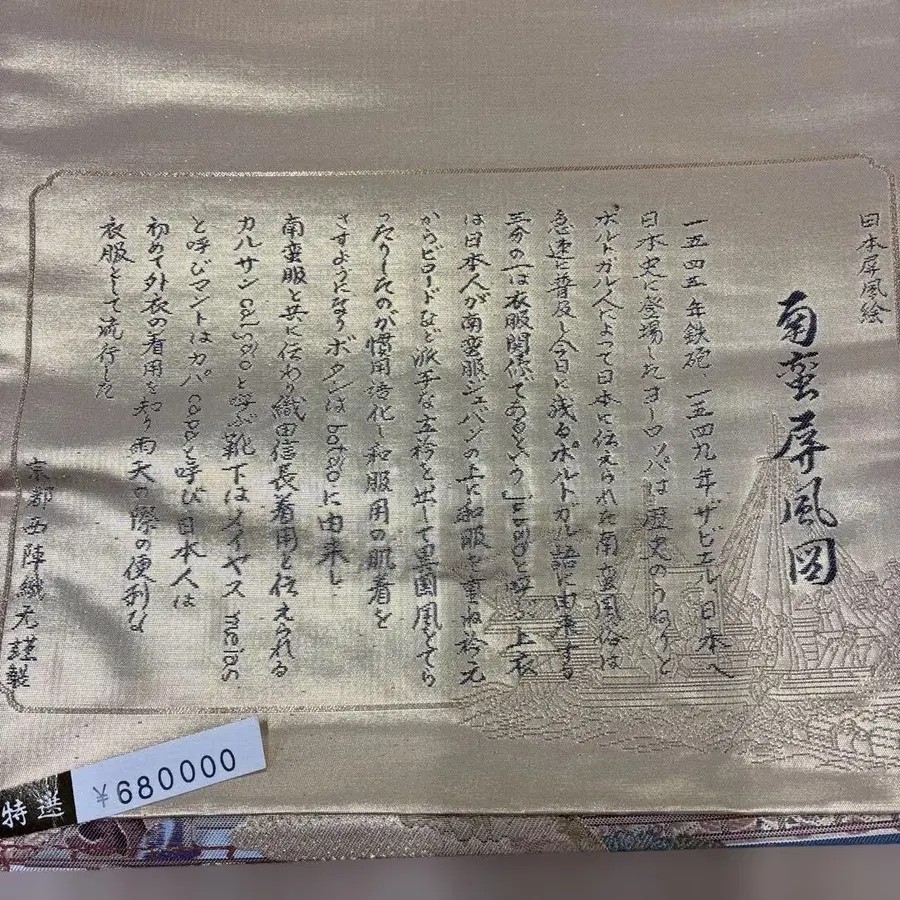 日本屏風絵
南蛮屏風図
一五四五年鉄砲一五四九年ザビエル、日本へ
日本史に登場したヨーロッパは歴史のうねりと
ポルトガル人によって日本に伝えられた南蛮風俗は
急速に普及し今日に残るポルトガル語に由来する
三分の一は衣服関係であるという と呼ぶ上衣
は日本人が南蛮服ジュバンの上に和服を重ね衿元
からビロードなど派手な立衿を出して異国風をてら
ったりしたのが慣用語化し和服用の肌着を
さすようになりボタンはbotãoに由来し
南蛮服と共に伝わり織田信長着用と伝えられる
カルサンcalçãoと呼ぶ靴下はメイヤスmeiasの
と呼びマントはカパcapaと呼び日本人は
初めて外衣の着用を知り雨天の際の便利な
衣服として流行した
京都西陣織元謹製
特選
¥680000